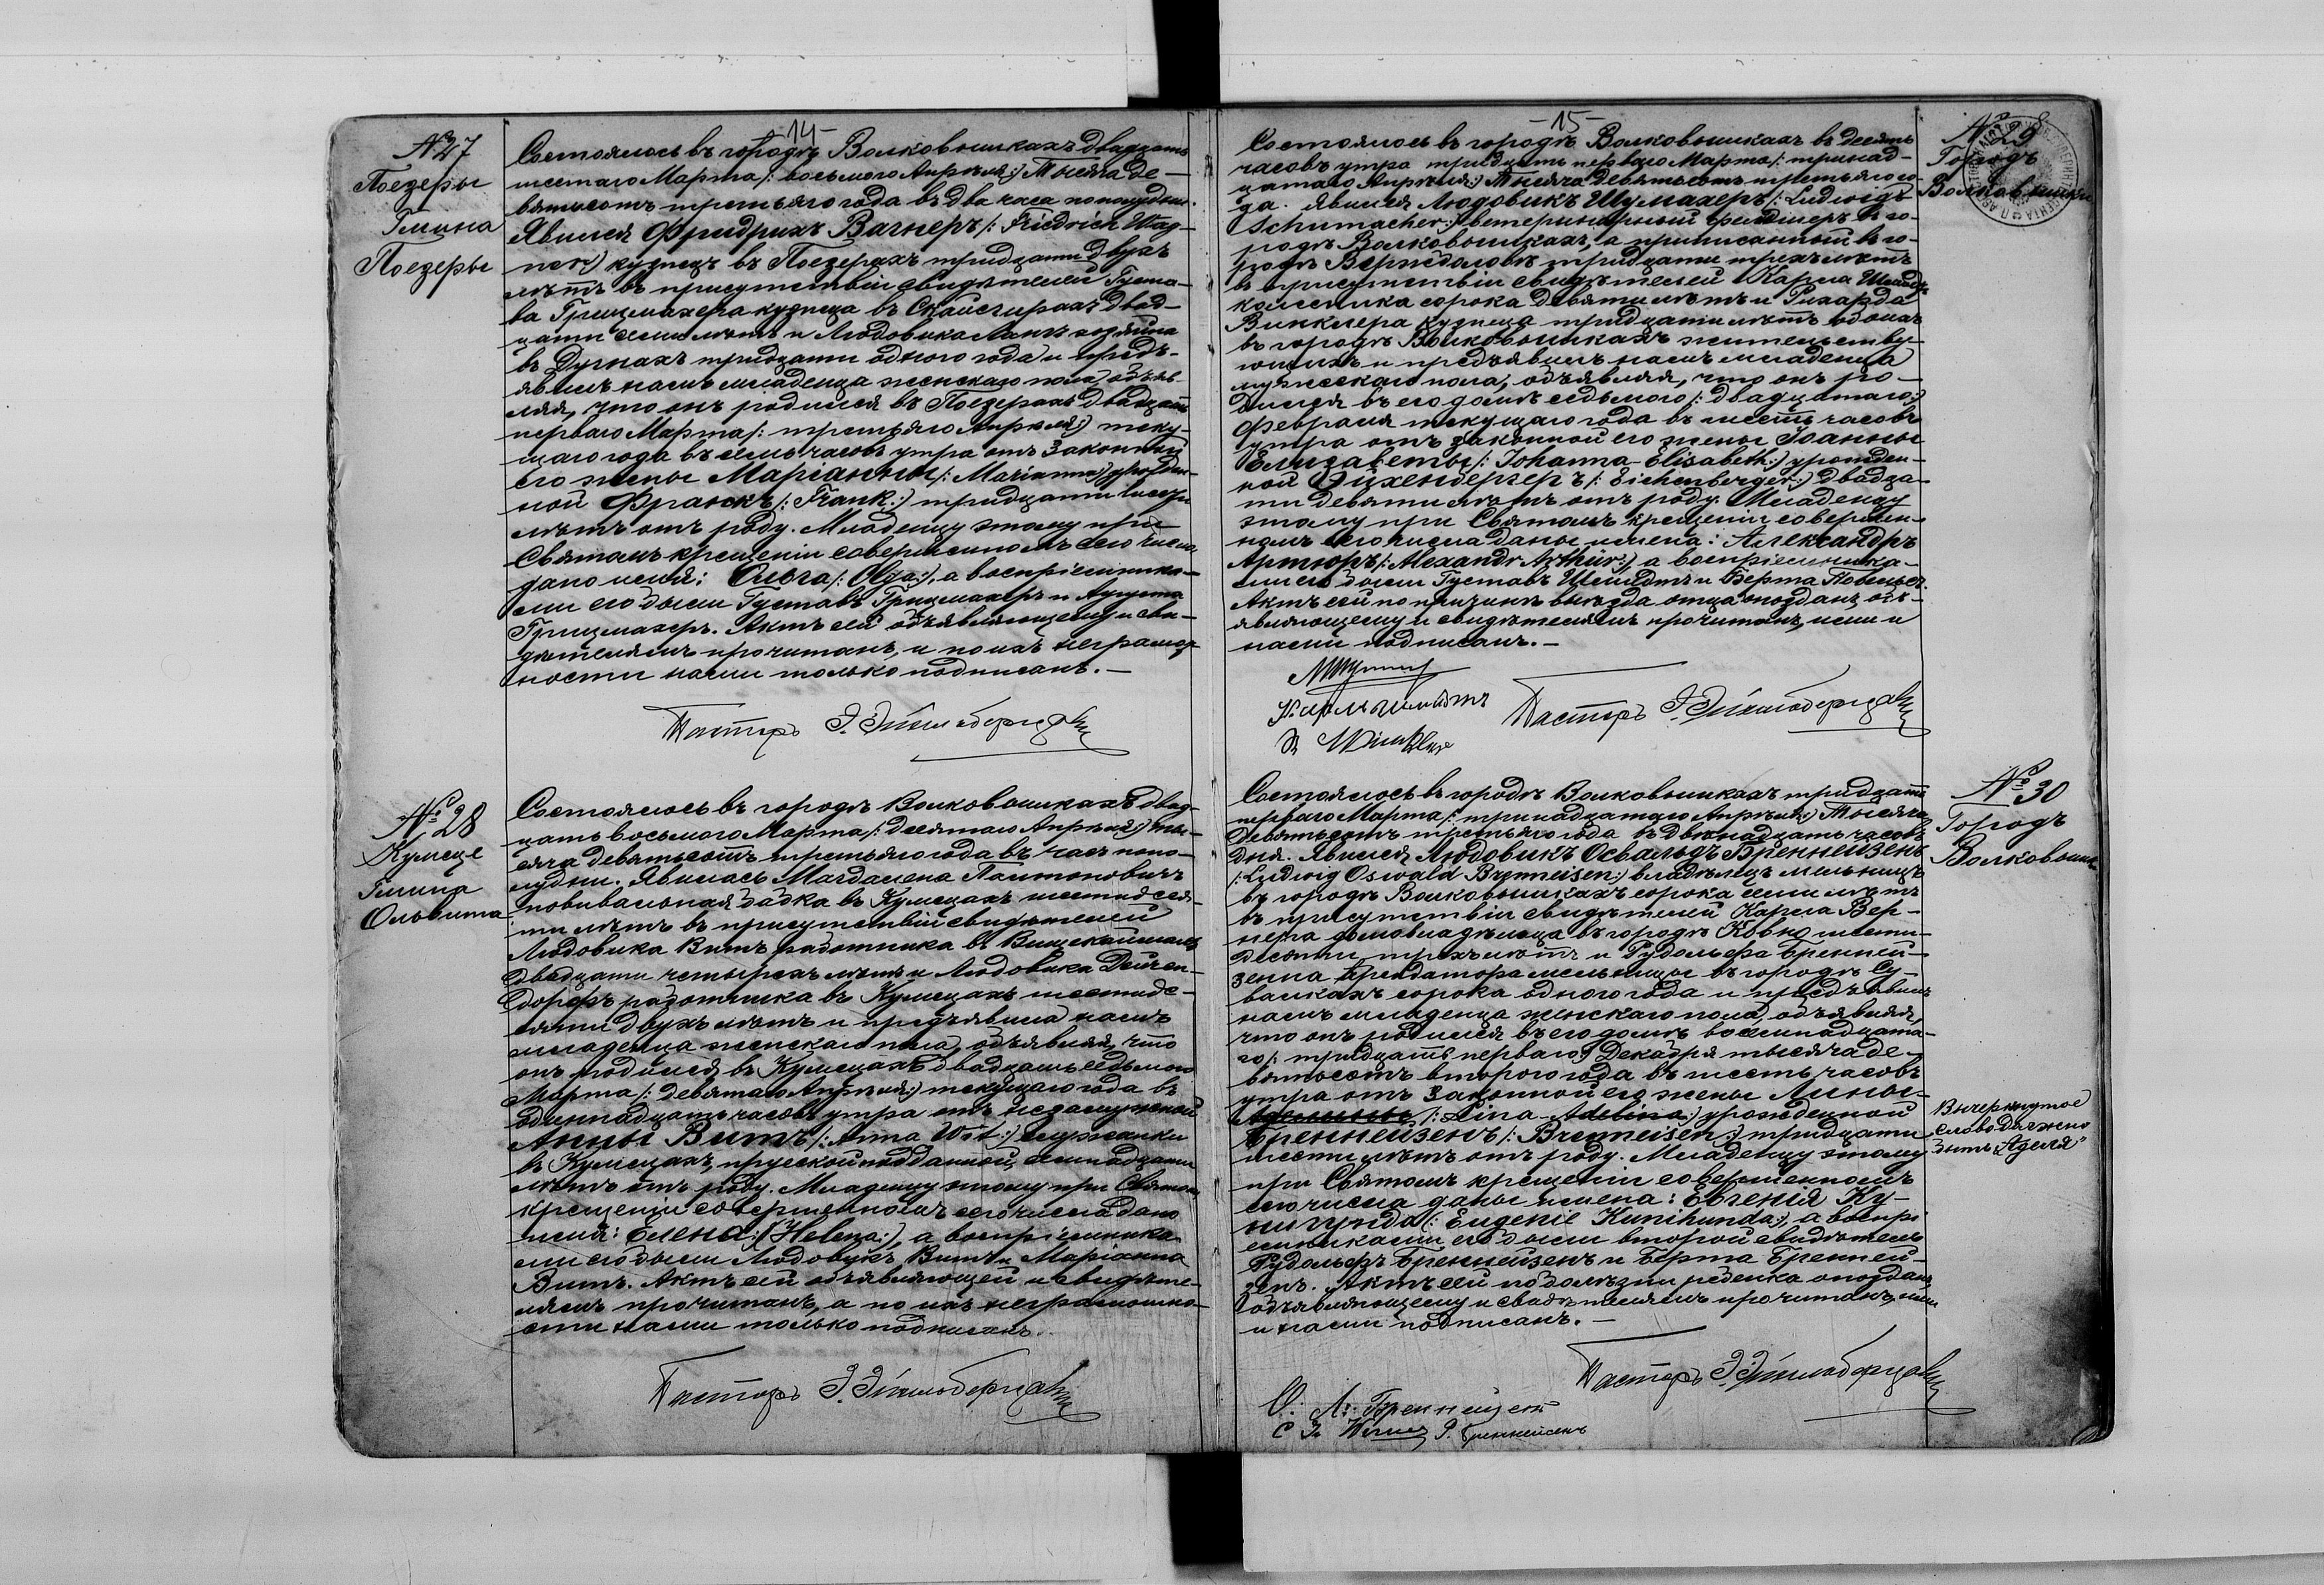 -14-
№27
Поезеры
Гмина
Поезеры
Состоялось въ городѣ Волковышкахъ двадцать
шестаго Марта /: восьмаго Апрѣля :/ Тысяча де-
вятьсотъ третьяго года въ два часа пополудни.
Явился Фридрихъ Вагнеръ /: Friedrich Wag-
ner :/ кузнецъ въ Поезерахъ тридцати двухъ
лѣтъ въ присутствіи свидѣтелей Густа-
ва Грицмахера кузнеца въ Скайсгирахъ двад-
цати семи лѣтъ и Людовика хозяина
въ Дугнахъ тридцати одного года и предъ-
явилъ намъ младенца женскаго пола, объяв-
ляя, что онъ родился въ Поезерахъ двадцать
перваго Марта /: третьяго Апрѣля :/ теку-
щаго года въ семь часовъ утра отъ законной
его жены Маріанны /: Marianna :/ урожден-
ной Франкъ /: Frank :/ тридцати
лѣтъ отъ роду. Младенцу этому при
Святомъ крещеніи совершенномъ сего числа
дано имя: Ольга /: Olga :/, а воспріемника-
ми его были Густавъ Грицмахеръ и Августа
Грицмахеръ. Актъ сей объявляющему и сви-
дѣтелямъ прочитанъ, и по ихъ неграмот-
ности нами только подписанъ. —
Пасторъ
№28
Кумеце
Гмина
Ольвита
Состоялось въ городѣ Волковышкахъ двад-
цать восьмого Марта /: десятаго Апрѣля :/ ты-
сяча девятьсотъ третьяго года въ часъ попо-
лудни. Явилась Магдалена
повивальная бабка въ Кумецахъ шестидеся-
ти лѣтъ въ присутствіи свидѣтелей
Людовика Витъ работника въ
двадцати четырехъ лѣтъ и Людовика Дейген-
дорфъ работника въ Кумецахъ шестиде-
сяти двухъ лѣтъ и предъявила намъ
младенца женскаго пола, объявляя, что
онъ родился въ Кумецахъ двадцать седьмого
Марта /: девятаго Апрѣля :/ текущаго года въ
одиннадцать часовъ утра отъ незамужней
Анны Витъ /: Anna Wit :/ служанки
въ Кумецахъ, прусской подданной, семнадцати
лѣтъ отъ роду. Младенцу этому при Святомъ
крещеніи совершенномъ сего числа дано
имя: Елена /: Helena :/, а воспріемника-
ми его были Людовикъ Витъ и Маріанна
Витъ. Актъ сей объявляющей и свидѣте-
лямъ прочитанъ, а по ихъ неграмотно-
сти нами только подписанъ.
Пасторъ
-15-
№29
Городъ
Волковышки
Состоялось въ городѣ Волковышкахъ въ десять
часовъ утра тридцать перваго Марта /: тринад-
цатаго Апрѣля :/ Тысяча девятьсотъ третьяго го-
да. Явился Людовикъ Шумахеръ /: Ludwig
Schumacher :/ ветеринарный фельдшеръ въ го-
родѣ Волковышкахъ, а приписанный въ го-
родѣ Вержболовѣ тридцати трехъ лѣтъ
въ присутствіи свидѣтелей Карла Шмидтъ
колесника сорока девяти лѣтъ и Рихарда
Винклера кузнеца тридцати лѣтъ обоихъ
въ городѣ Волковышкахъ жительству-
ющихъ и предъявилъ намъ младенца
мужескаго пола, объявляя, что онъ ро-
дился въ его домѣ седьмого /: двадцатаго :/
Февраля текущаго года въ шесть часовъ
утра отъ законной его жены Іоанны
Елисаветы /: Johanna-Elisabeth :/ урожден-
ной Эйхенбергеръ /: Eichenberger :/ двадца-
ти девяти лѣтъ отъ роду. Младенцу
этому при Святомъ крещеніи совершен-
номъ сего числа даны имена: Александръ
Артюръ /: Alexandr Arthur :/, а воспріемника-
ми его были Густавъ Шмидтъ и Берта
Актъ сей по причинѣ выѣзда отца опозданъ, объ-
являющему и свидѣтелямъ прочитанъ, ими и
нами подписанъ. —
Пасторъ
№30
Городъ
Волковышки
Состоялось въ городѣ Волковышкахъ тридцать
перваго Марта /: тринадцатаго Апрѣля :/ Тысяча
девятьсотъ третьяго года въ двѣнадцать часовъ
дня. Явился Людовикъ Освальдъ Бреннейзенъ
/: Ludwig Oswald Brenneisen :/ владѣлецъ мельницъ
въ городѣ Волковышкахъ сорока семи лѣтъ
въ присутствіи свидѣтелей Карла Вер-
нера домовладѣльца въ городѣ Ковно шести-
десяти трехъ лѣтъ и Рудольфа Бренней-
зена арендатора мельницы въ городѣ Су-
валкахъ сорока одного года и предъявилъ
намъ младенца женскаго пола, объявляя,
что онъ родился въ его домѣ восемнадцата-
го /: тридцать перваго :/ Декабря тысяча де-
вятьсотъ второго года въ шесть часовъ
утра отъ законной его жены Лины-
/: Lina-Adelina :/ урожденной
Бреннейзенъ /: Brenneisen :/ тридцати
шести лѣтъ отъ роду. Младенцу этому
при Святомъ крещеніи совершенномъ
сего числа даны имена: Евгенія Ку-
нигунда /: Eugenie Kunihunda :/, а воспрі-
емниками его были второй свидѣтель
Рудольфъ Бреннейзенъ и Берта Бренней-
зенъ. Актъ сей по болѣзни ребенка опозданъ,
объявляющему и свидѣтелямъ прочитанъ, ими
и нами подписанъ. —
Вычеркнутое
слово должно
быть „Аделя"
Пасторъ
О. Л. Бреннейзенъ
Р. Бреннейзенъ